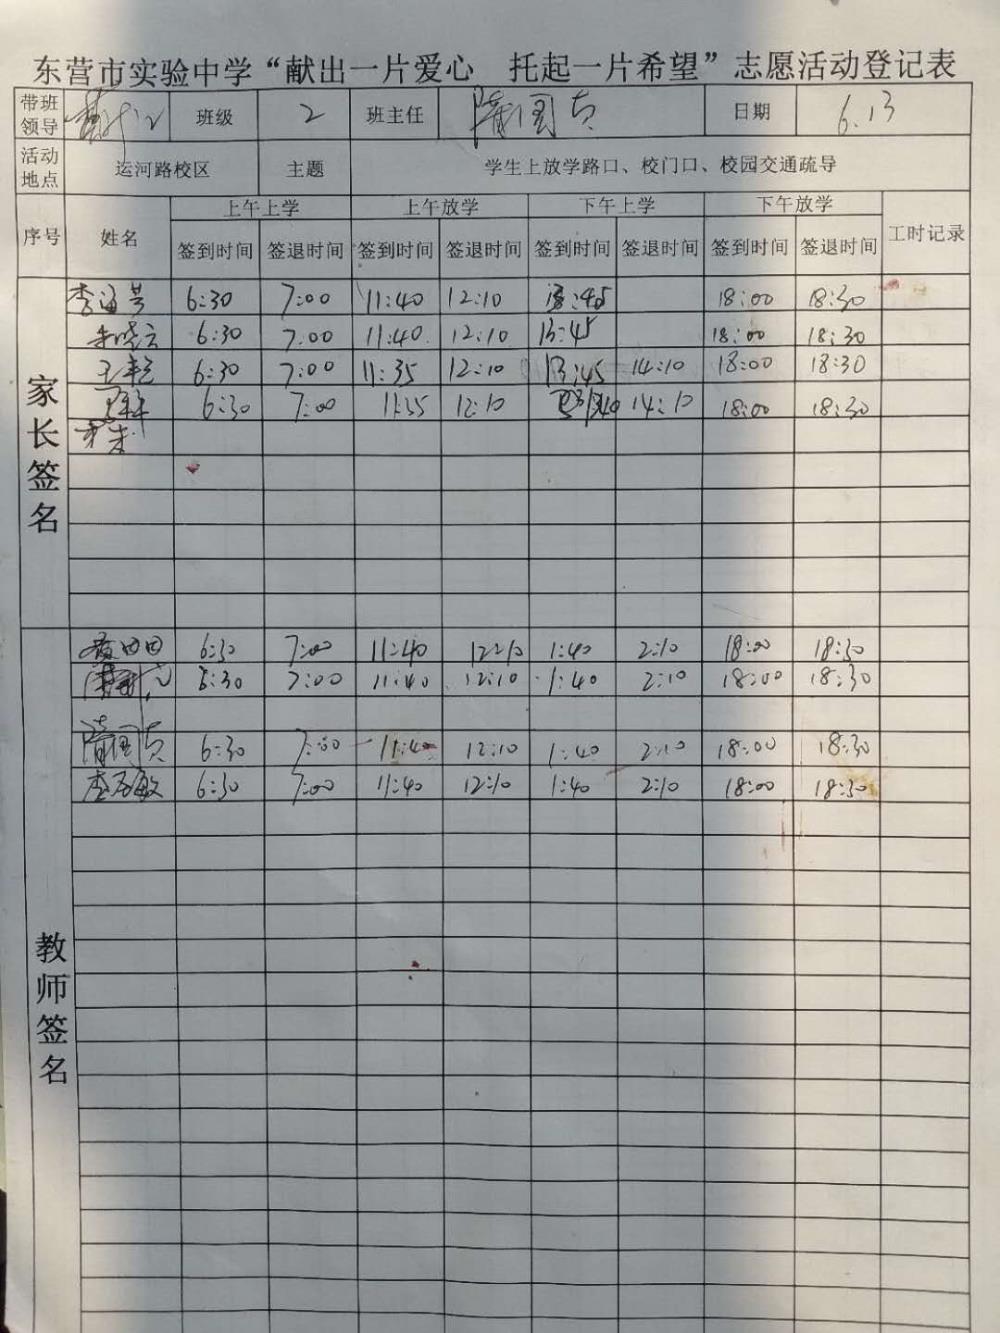 东营市实验中学“献出一片爱心 托起一片希望”志愿活动登记表
带班领导 班级 2 班主任 隋国贞 日期 6.13
活动地点 运河路校区 主题 学生上放学路口、校门口、校园交通疏导
序号 姓名 上午上学 上午放学 下午上学 下午放学 工时记录
签到时间 签退时间 签到时间 签退时间 签到时间 签退时间 签到时间 签退时间
家长签名
6:30 7:00 11:40 12:10 13:45 18:00 18:30
朱晓云 6:30 7:00 11:40 12:10 13:45 18:00 18:30
6:30 7:00 11:35 12:10 13:45 14:10 18:00 18:30
6:30 7:00 11:35 12:10 14:10 18:00 18:30
教师签名
田田 6:30 7:00 11:40 12:10 1:40 2:10 18:00 18:30
6:30 7:00 11:40 12:10 1:40 2:10 18:00 18:30
隋国贞 6:30 7:00 11:40 12:10 1:40 2:10 18:00 18:30
6:30 7:00 11:40 12:10 1:40 2:10 18:00 18:30